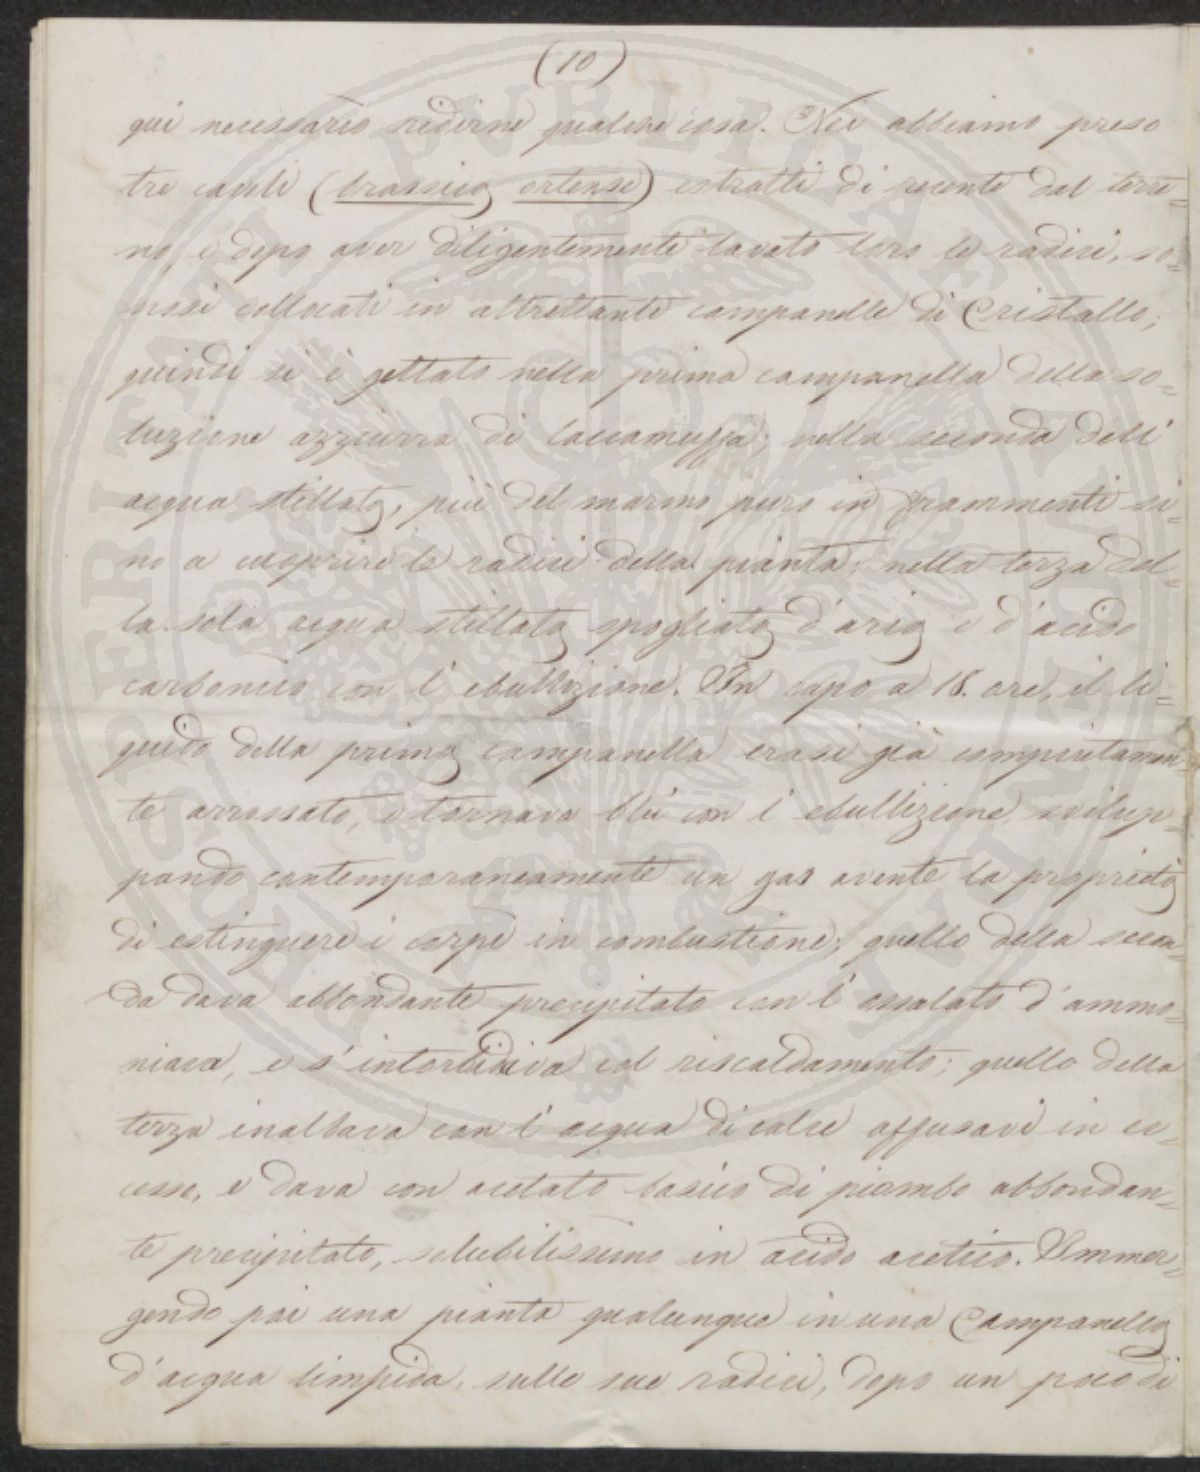 (10)
qui necessario ridirne qualche cosa. Noi abbiamo preso
tre cavoli (brassica ortense) estratti di recente dal terre=
no, e dopo aver diligentemente lavato loro le radici, so=
nosi collocati in altrettante campanelle di Cristallo;
quindi si è gettato nella prima campanella della so=
luzione azzurra di laccamuffa; nella seconda dell'
acqua stillata, più del marmo puro in frammenti si=
no a coprire le radici della pianta; nella terza del=
la sola acqua stillata spogliata d'aria e d'acido
carbonico con l'ebullizione. In capo a 18. ore, il li=
quido della prima campanella erasi già compiutamen=
te arrossato, e tornava blù con l'ebullizione, svilup=
pando contemporaneamente un gas avente la proprietà
di estinguere i corpi in combustione; quello della secon=
da dava abbondante precipitato con l'ossalato d'ammo=
niaca, e s'intorbidiva col riscaldamento; quello della
terza inalbava con l'acqua di calce affusavi in ec=
cesso, e dava con acetato basico di piombo abbondan=
te precipitato, solubilissimo in acido acetico. Immer=
gendo poi una pianta qualunque in una Campanella
d'acqua limpida, sulle sue radici, dopo un poco di
PROSPERITATI PUBLICAE AUGENDAE